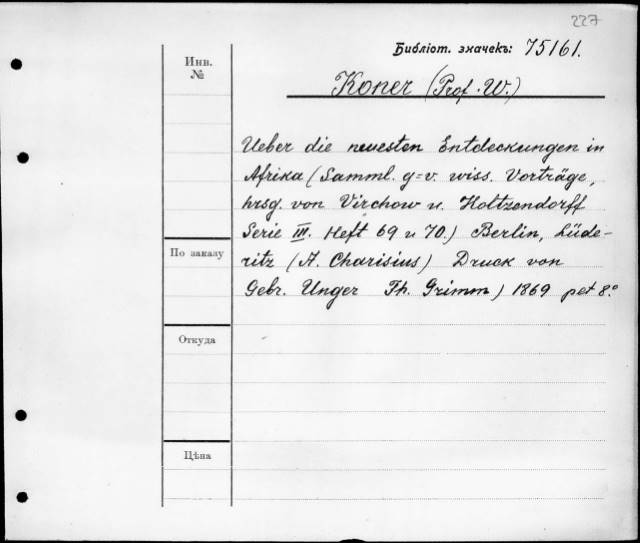 227
Библіот. значекъ: 75161.
Инв.
№
Koner (Prof. W.)
Ueber die neuesten Entdeckungen in
Afrika (Samml. g=v. wiss. Vorträge,
hrsg. von Virchow u. Holtzendorff
Serie III. Heft 69 u 70.) Berlin, Lüde-
По заказу
ritz (A. Charisius) Druck von
Gebr. Unger Th. Grimm) 1869 pet 8.°
Откуда
Цѣна